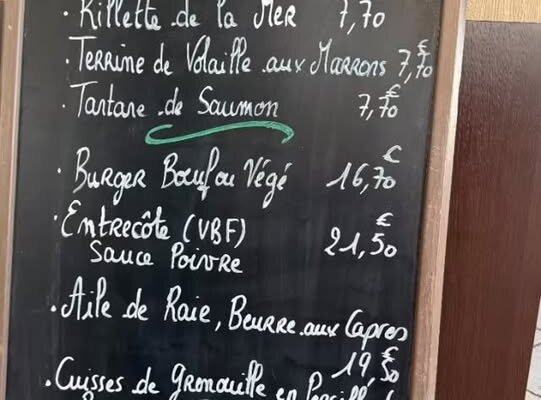 · Rillette de la Mer 7,70
· Terrine de Volaille aux Marrons 7,70 €
· Tartare de Saumon 7,70 €
· Burger Bœuf ou Végé 16,70 €
· Entrecôte (VBF) 21,50 €
Sauce Poivre
· Aile de Raie, Beurre aux Capres
19,50 €
· Cuisses de Grenouille en Persill